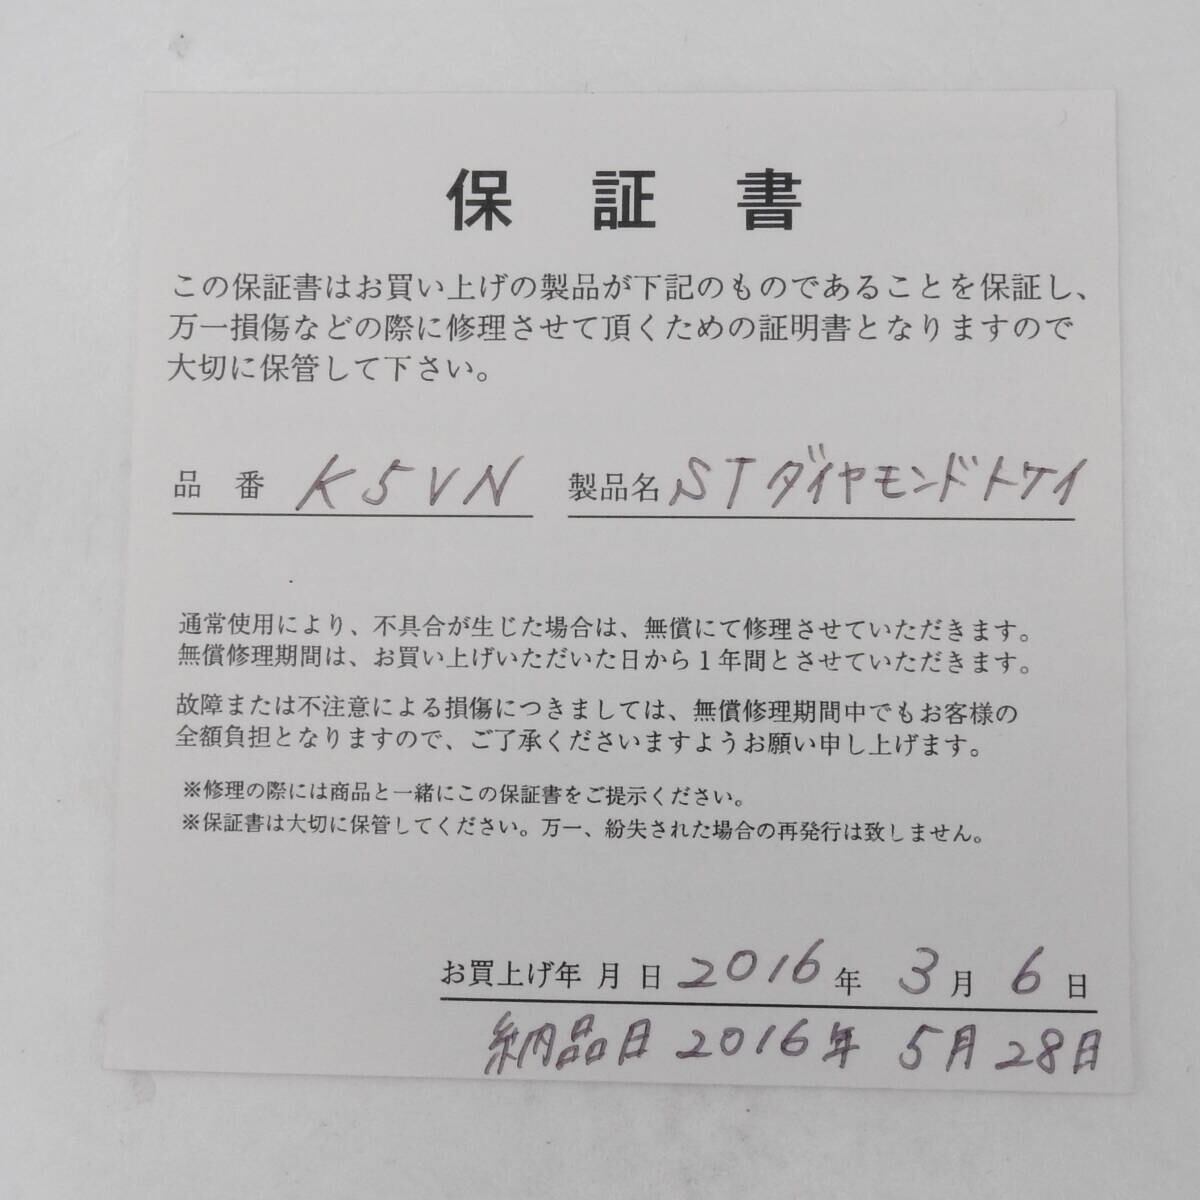 保証書
この保証書はお買い上げの製品が下記のものであることを保証し、
万一損傷などの際に修理させて頂くための証明書となりますので
大切に保管して下さい。
品番 K5VN 製品名 STダイヤモンドトケイ
通常使用により、不具合が生じた場合は、無償にて修理させていただきます。
無償修理期間は、お買い上げいただいた日から1年間とさせていただきます。
故障または不注意による損傷につきましては、無償修理期間中でもお客様の
全額負担となりますので、ご了承くださいますようお願い申し上げます。
※修理の際には商品と一緒にこの保証書をご提示ください。
※保証書は大切に保管してください。万一、紛失された場合の再発行は致しません。
お買上げ年月日 2016年 3月 6日
納品日 2016年 5月 28日